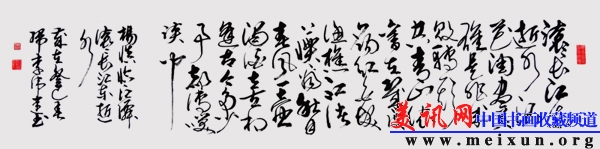 滚滚长江东
逝水浪花
淘尽英
雄是非成
败转头
空青山依
旧在几度
夕阳红白发
渔樵江渚
上惯看秋月
春风一壶
浊酒喜相
逢古今多少
事都付笑
谈中
杨慎临江仙
滚滚长江东逝
水
美讯网
中国书画收藏频道
www.meixun.org